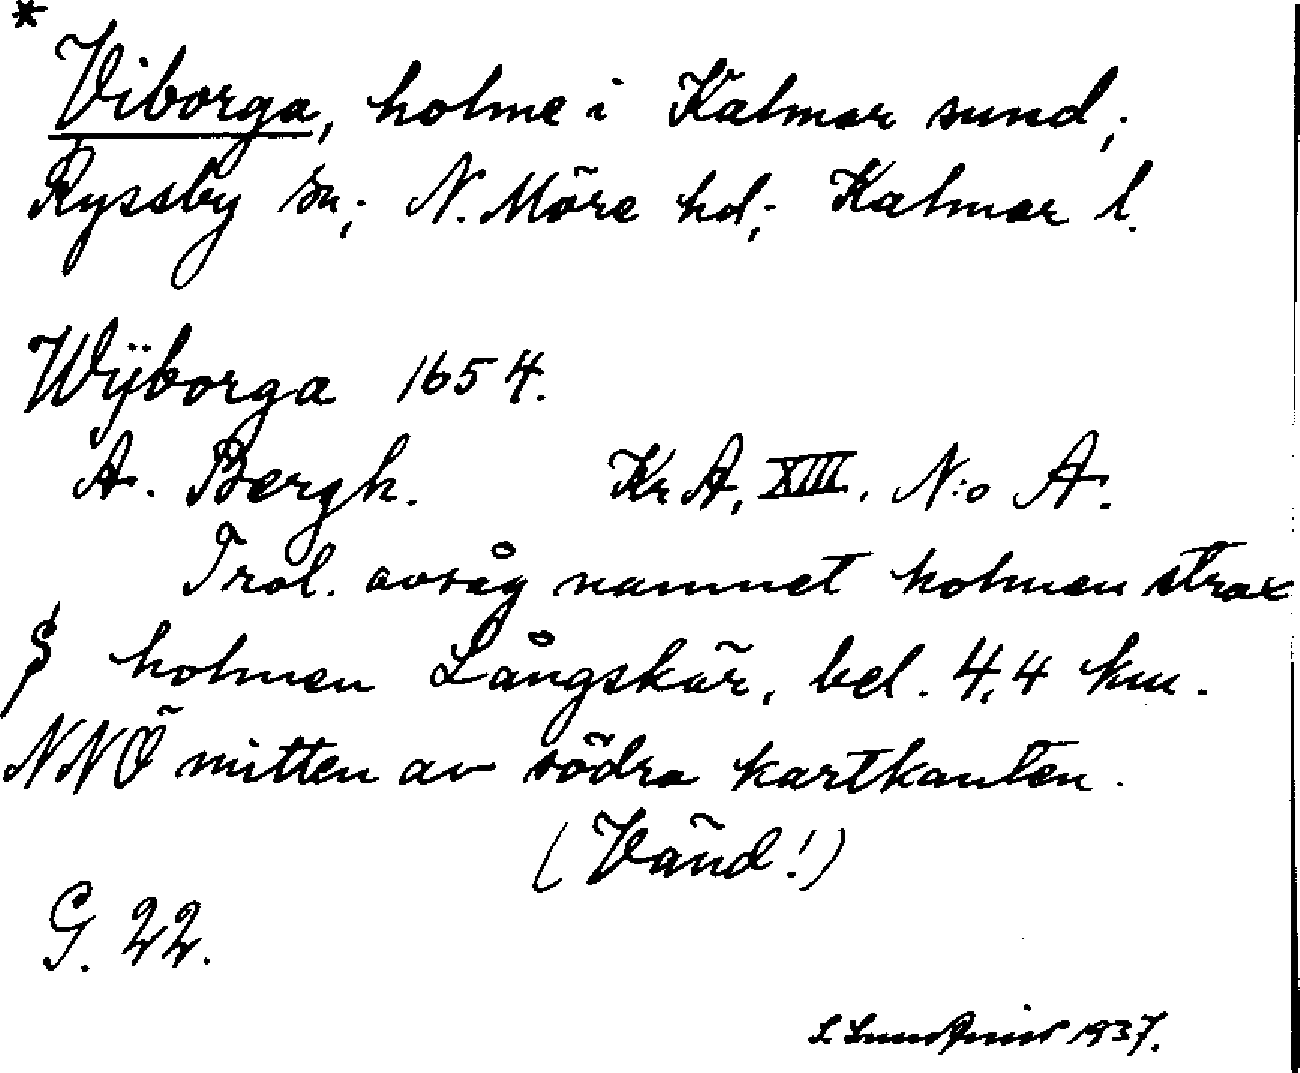 *
Viborga, holme i Kalmar sund;
Ryssby sn; N. Möre hd; Kalmar l.
Wÿborga 1654.
A. Bergh. Kr A, XIII. N:o A.
Trol. avsåg namnet holmen strax
S holmen Långskär, bel. 4,4 km.
NNÖ mitten av södra kartkanten.
(Vänd!)
G. 22.
1937.